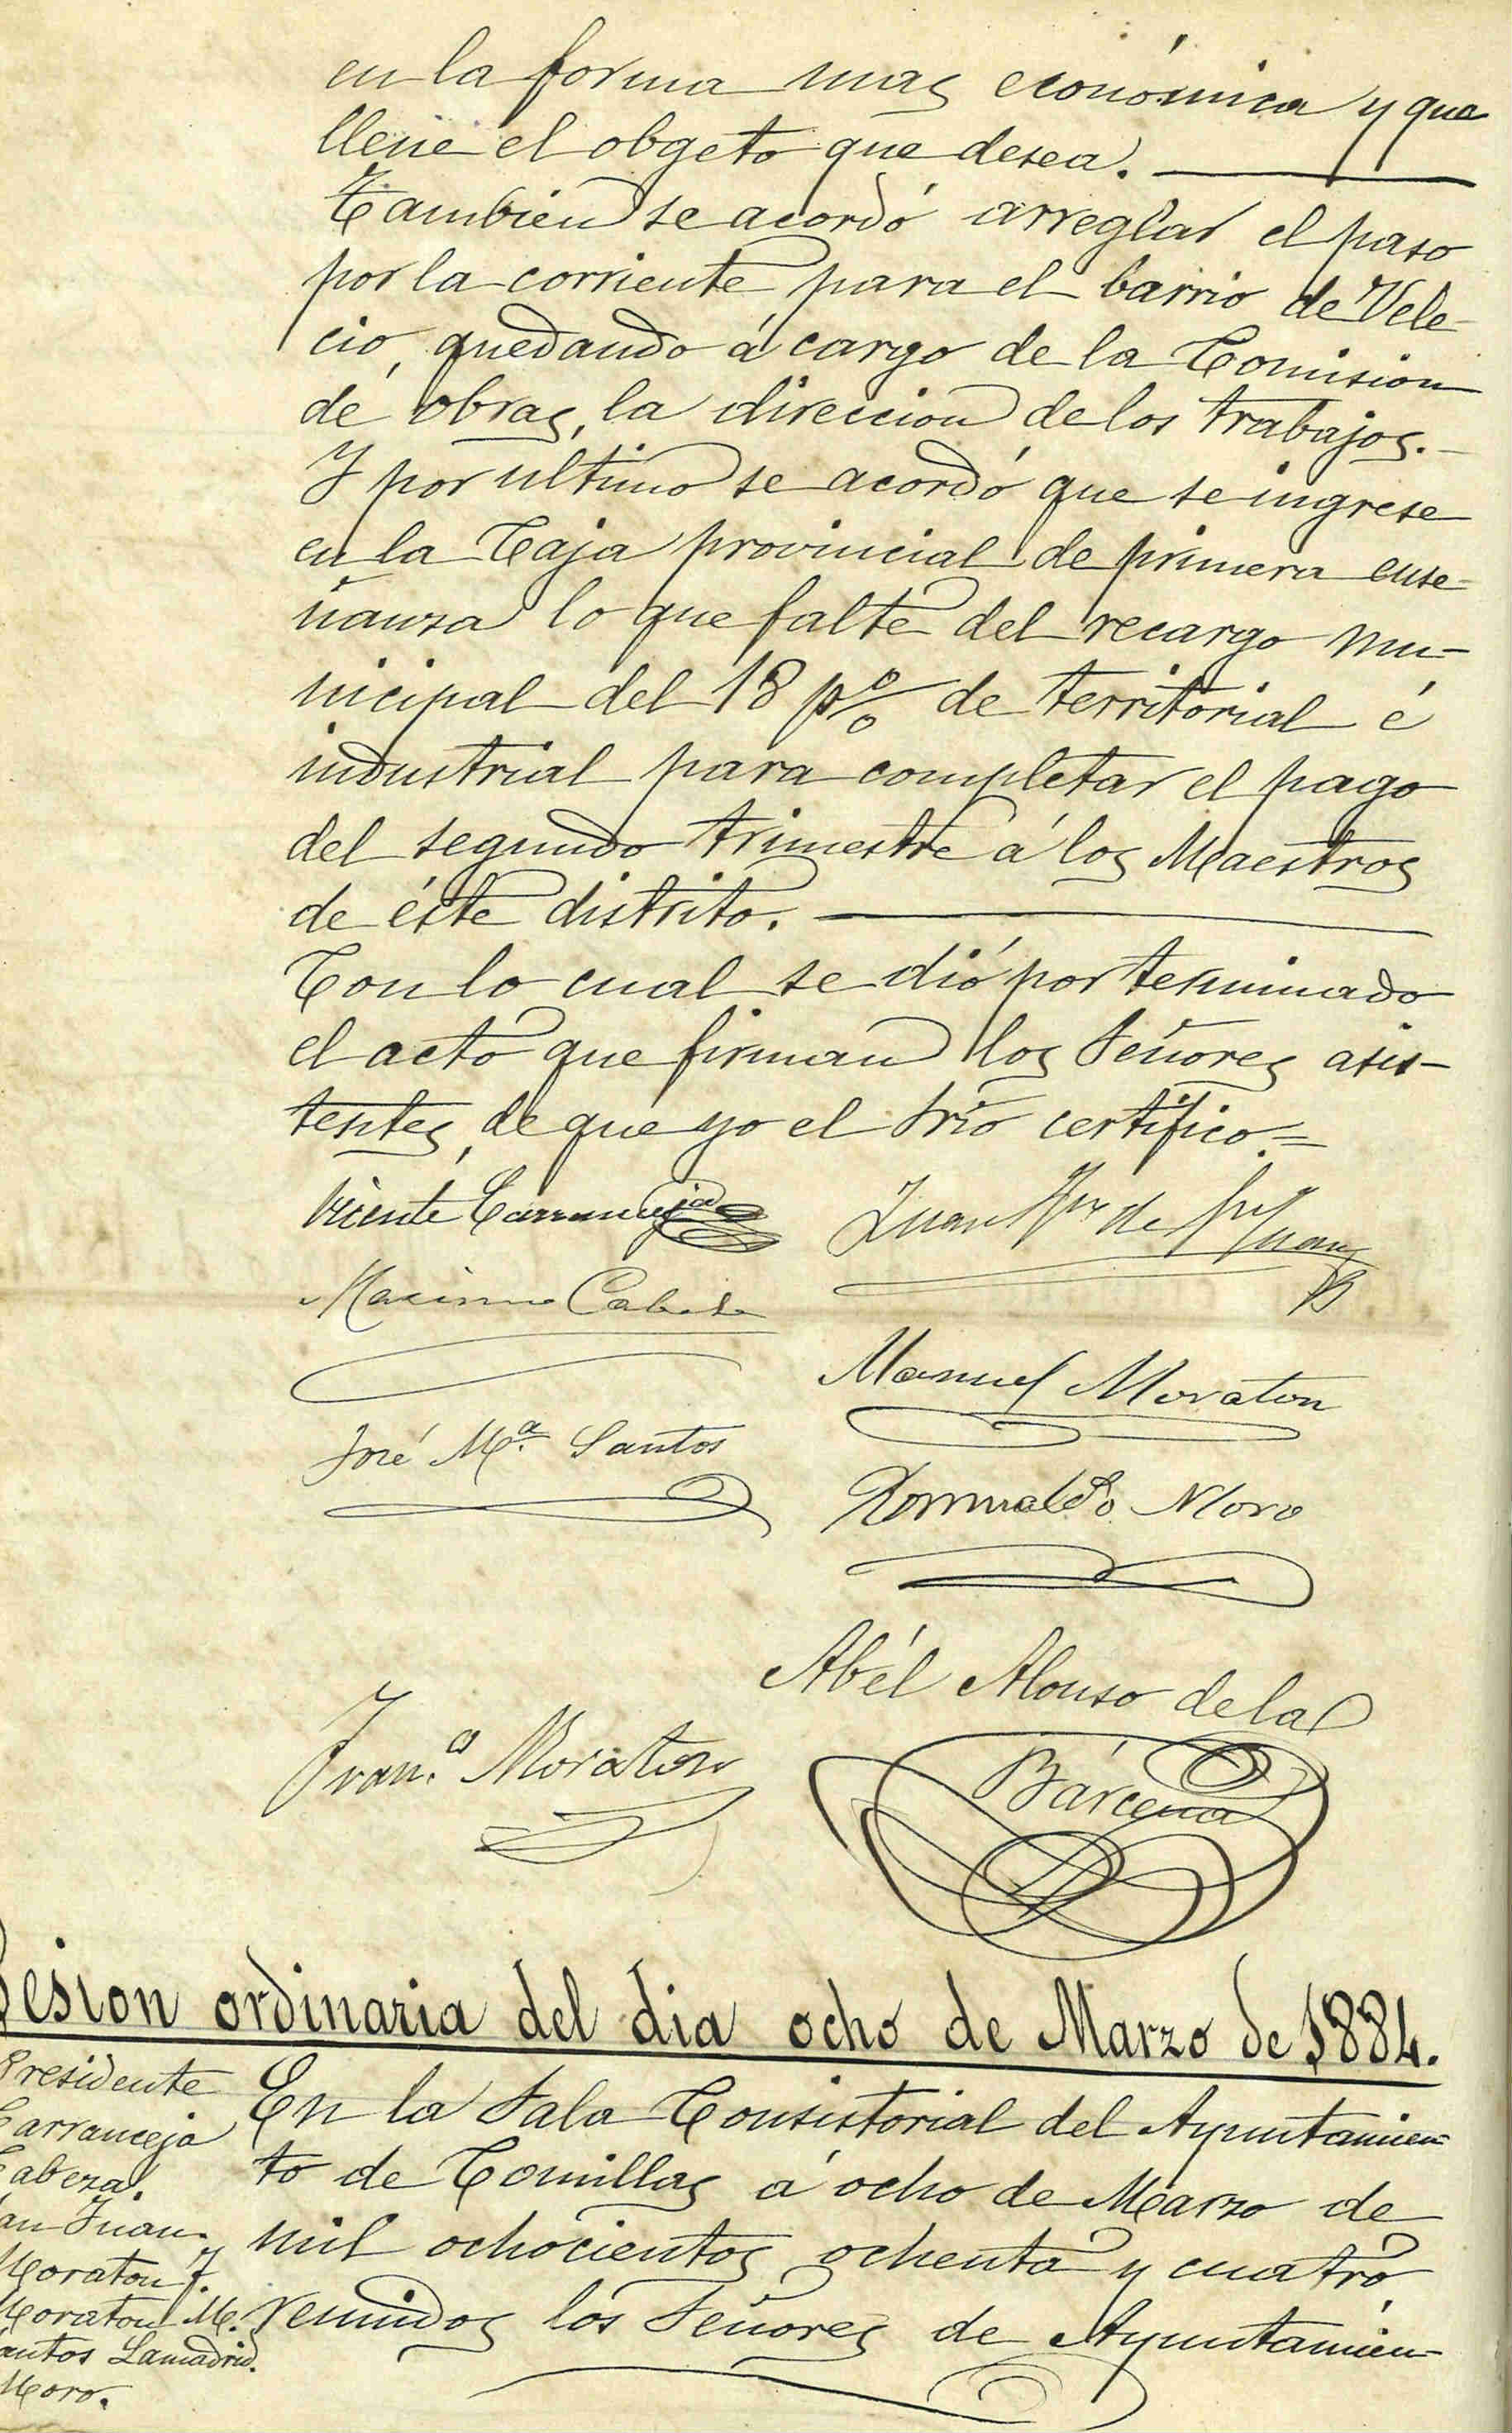 en la forma mas económica y que
llene el obgeto que desea.
Tambien se acordó arreglar el paso
por la corriente para el barrio de Vele-
cio, quedando á cargo de la Comision
de obras, la direccion de los trabajos.
Y por ultimo se acordó que se ingrese
en la Caja provincial de primera ense-
ñanza lo que falte del recargo mu-
nicipal del 18 p% de territorial é
industrial para completar el pago
del segundo trimestre á los Maestros
de éste distrito.
Con lo cual se dió por terminado
el acto que firman los Señores asis-
tentes, de que yo el Srio certifico.=
Vicente Carranceja
Juan de
Maximo Cabeza
Manuel Moraton
José Mª. Santos
Romualdo Moro
Abél Alonso de la
Bárcena
Fran.co Moraton
Sesion ordinaria del dia ocho de Marzo de 1884.
Presidente
Carranceja
Cabeza.
San Juan.
Moraton F.
Moraton M.
Santos Lamadrid.
Moro.
En la Sala Consistorial del Ayuntamien-
to de Comillas á ocho de Marzo de
mil ochocientos ochenta y cuatro,
reunidos los Señores de Ayuntamien-